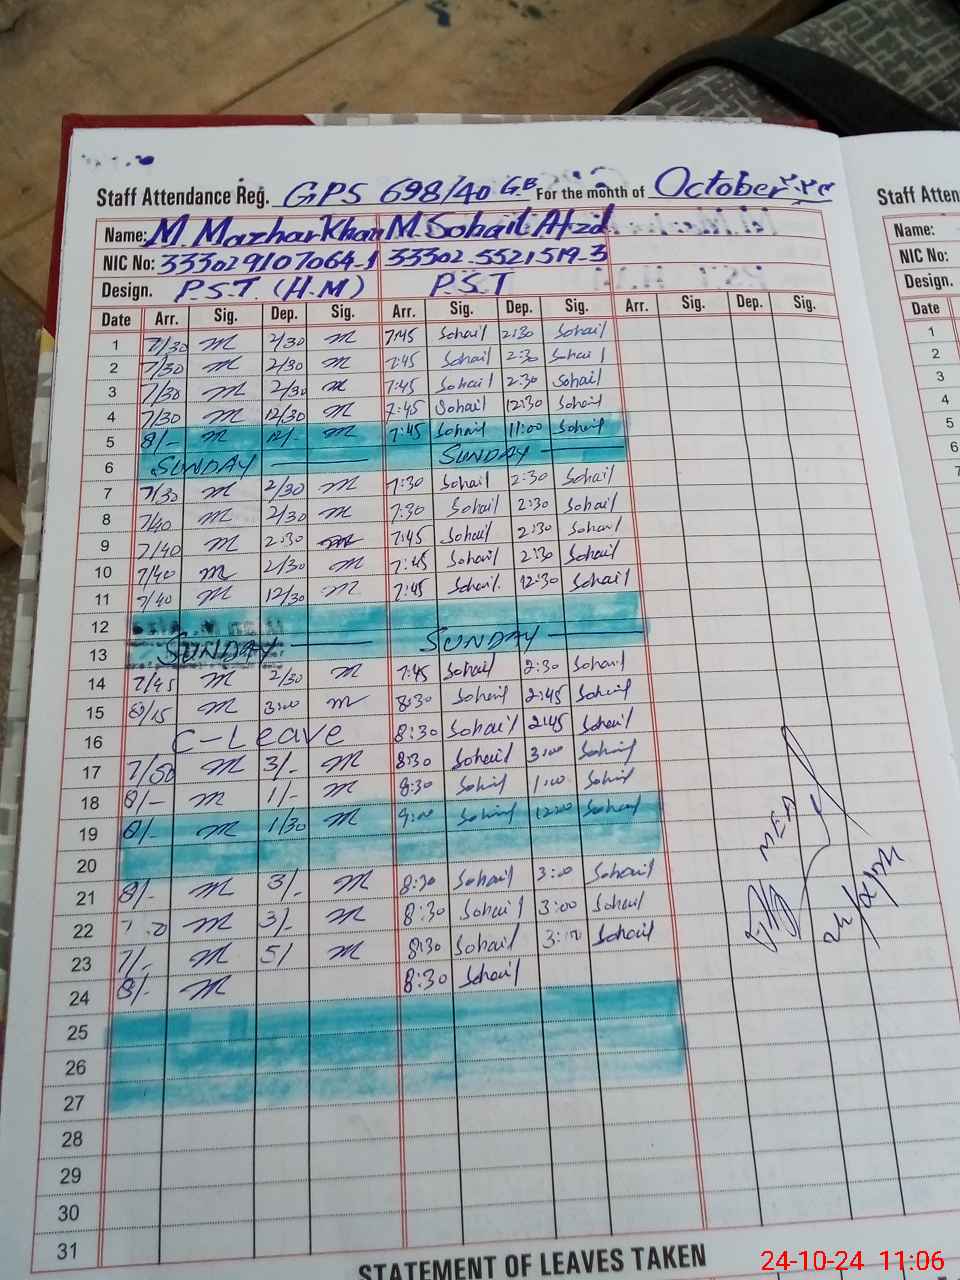 Staff Attendance Reg. GPS 698/40 G.B For the month of October ۲۰۲۴
Name: M. Mazhar Khan M. Sohail Afzal
NIC No: 333029107064-1 33302.5521519-3
Design. P.S.T. (H.M) P.S.T
Date Arr. Sig. Dep. Sig. Arr. Sig. Dep. Sig. Arr. Sig. Dep. Sig.
1 7/30 m 2/30 m 7:45 Sohail 2:30 Sohail
2 7/30 m 2/30 m 7:45 Sohail 2:30 Sohail
3 7/30 m 2/30 m 7:45 Sohail 2:30 Sohail
4 7/30 m 12/30 m 7:45 Sohail 12:30 Sohail
5 8/- m 12/- m 7:45 Sohail 11:00 Sohail
6 SUNDAY SUNDAY
7 7/30 m 2/30 m 7:30 Sohail 2:30 Sohail
8 7/40 m 2/30 m 7:30 Sohail 2:30 Sohail
9 7/40 m 2:30 m 7:45 Sohail 2:30 Sohail
10 7/40 m 2/30 m 7:45 Sohail 2:30 Sohail
11 7/40 m 12/30 m 7:45 Sohail 12:30 Sohail
12
13 SUNDAY SUNDAY
14 7/45 m 2/30 m 7:45 Sohail 2:30 Sohail
15 8/15 m 3:00 m 8:30 Sohail 2:45 Sohail
16 C-Leave 8:30 Sohail 2:45 Sohail
17 7/50 m 3/- m 8:30 Sohail 3:00 Sohail
18 8/- m 1/- m 8:30 Sohail 1:00 Sohail
19 8/- m 1/30 m 9:00 Sohail 12:00 Sohail
20
21 8/- m 3/- m 8:30 Sohail 3:00 Sohail
22 m 3/- m 8:30 Sohail 3:00 Sohail
23 7/- m 5/ m 8:30 Sohail 3:00 Sohail
24 8/- m 8:30 Sohail
25
26
27
28
29
30
31
MEA
24/10/24
STATEMENT OF LEAVES TAKEN
Staff Atten
Name:
NIC No:
Design.
Date Arr.
1
2
3
4
5
6
7
24-10-24 11:06